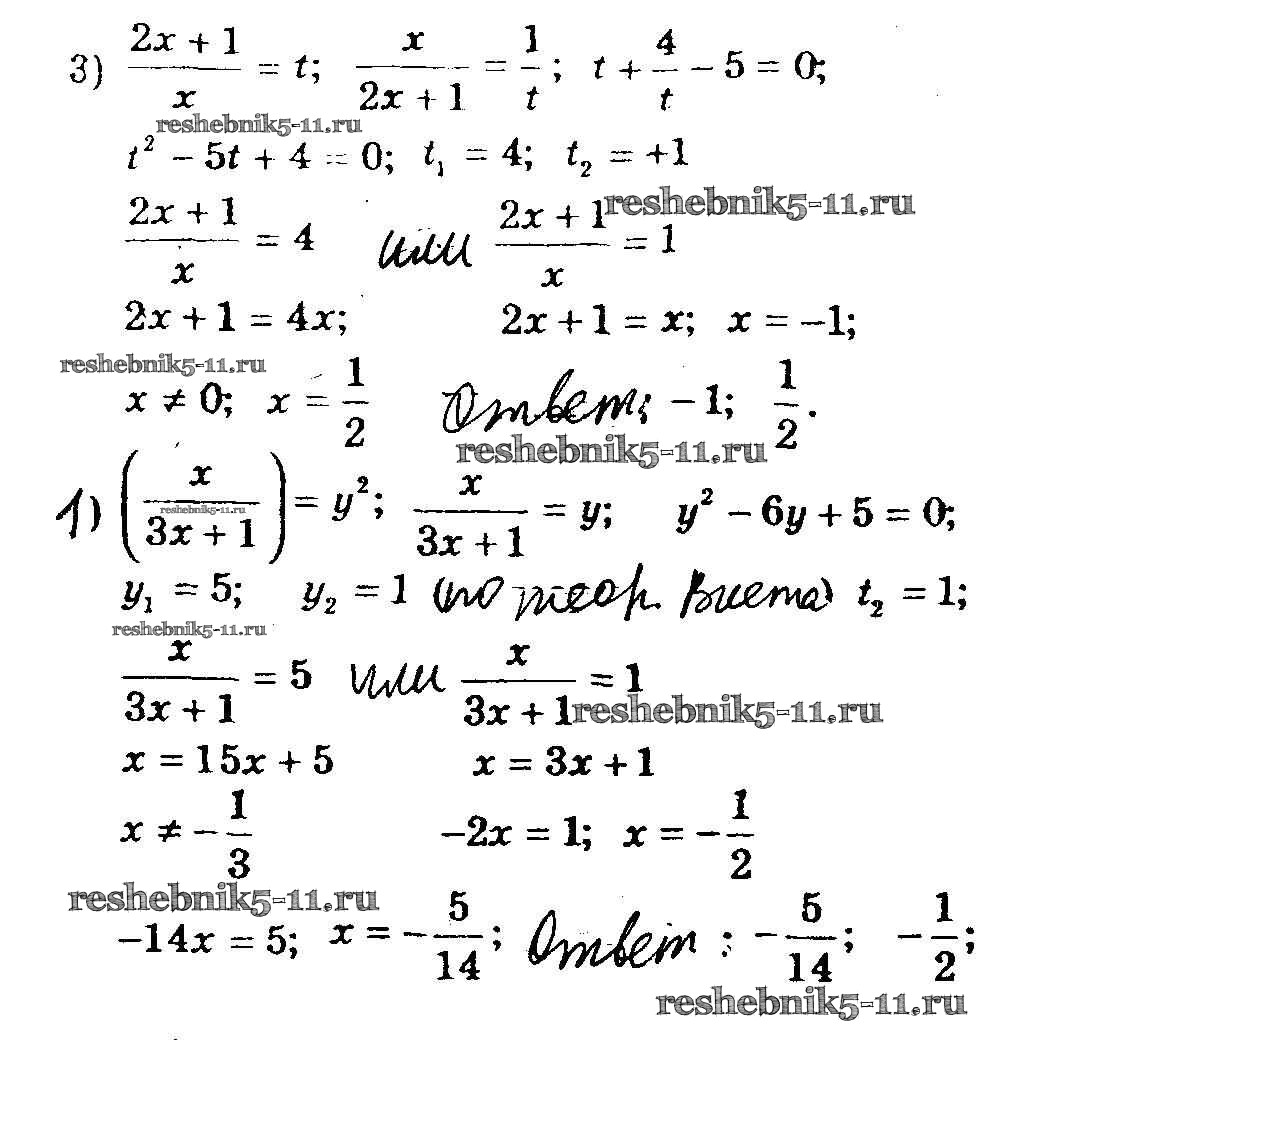 3) (2x + 1)/x = t; x/(2x + 1) = 1/t; t + 4/t − 5 = 0;
reshebnik5-11.ru
t² − 5t + 4 = 0; t₁ = 4; t₂ = +1
reshebnik5-11.ru
(2x + 1)/x = 4 или (2x + 1)/x = 1
2x + 1 = 4x; 2x + 1 = x; x = −1;
reshebnik5-11.ru
x ≠ 0; x = 1/2 Ответ: −1; 1/2.
reshebnik5-11.ru
1) (x/(3x + 1)) = y²; x/(3x + 1) = y; y² − 6y + 5 = 0;
reshebnik5-11.ru
y₁ = 5; y₂ = 1 (по теор. Виета) t₂ = 1;
reshebnik5-11.ru
x/(3x + 1) = 5 или x/(3x + 1) = 1
reshebnik5-11.ru
x = 15x + 5 x = 3x + 1
x ≠ −1/3 −2x = 1; x = −1/2
reshebnik5-11.ru
−14x = 5; x = −5/14; Ответ: −5/14; −1/2;
reshebnik5-11.ru